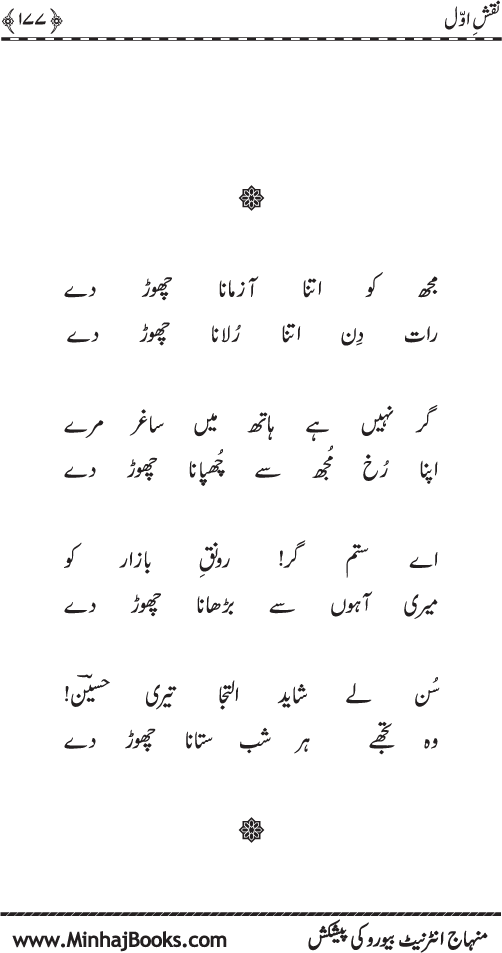 نقشِ اوّل
﴿۱۷۷﴾
مجھ کو اتنا آزمانا چھوڑ دے
رات دِن اتنا رُلانا چھوڑ دے
گر نہیں ہے ہاتھ میں ساغر مرے
اپنا رُخ مُجھ سے چُھپانا چھوڑ دے
اے ستم گر! رونقِ بازار کو
میری آہوں سے بڑھانا چھوڑ دے
سُن لے شاید التجا تیری حسینؔ!
وہ تجھے ہر شب ستانا چھوڑ دے
منہاج انٹرنیٹ بیورو کی پیشکش
www.MinhajBooks.com